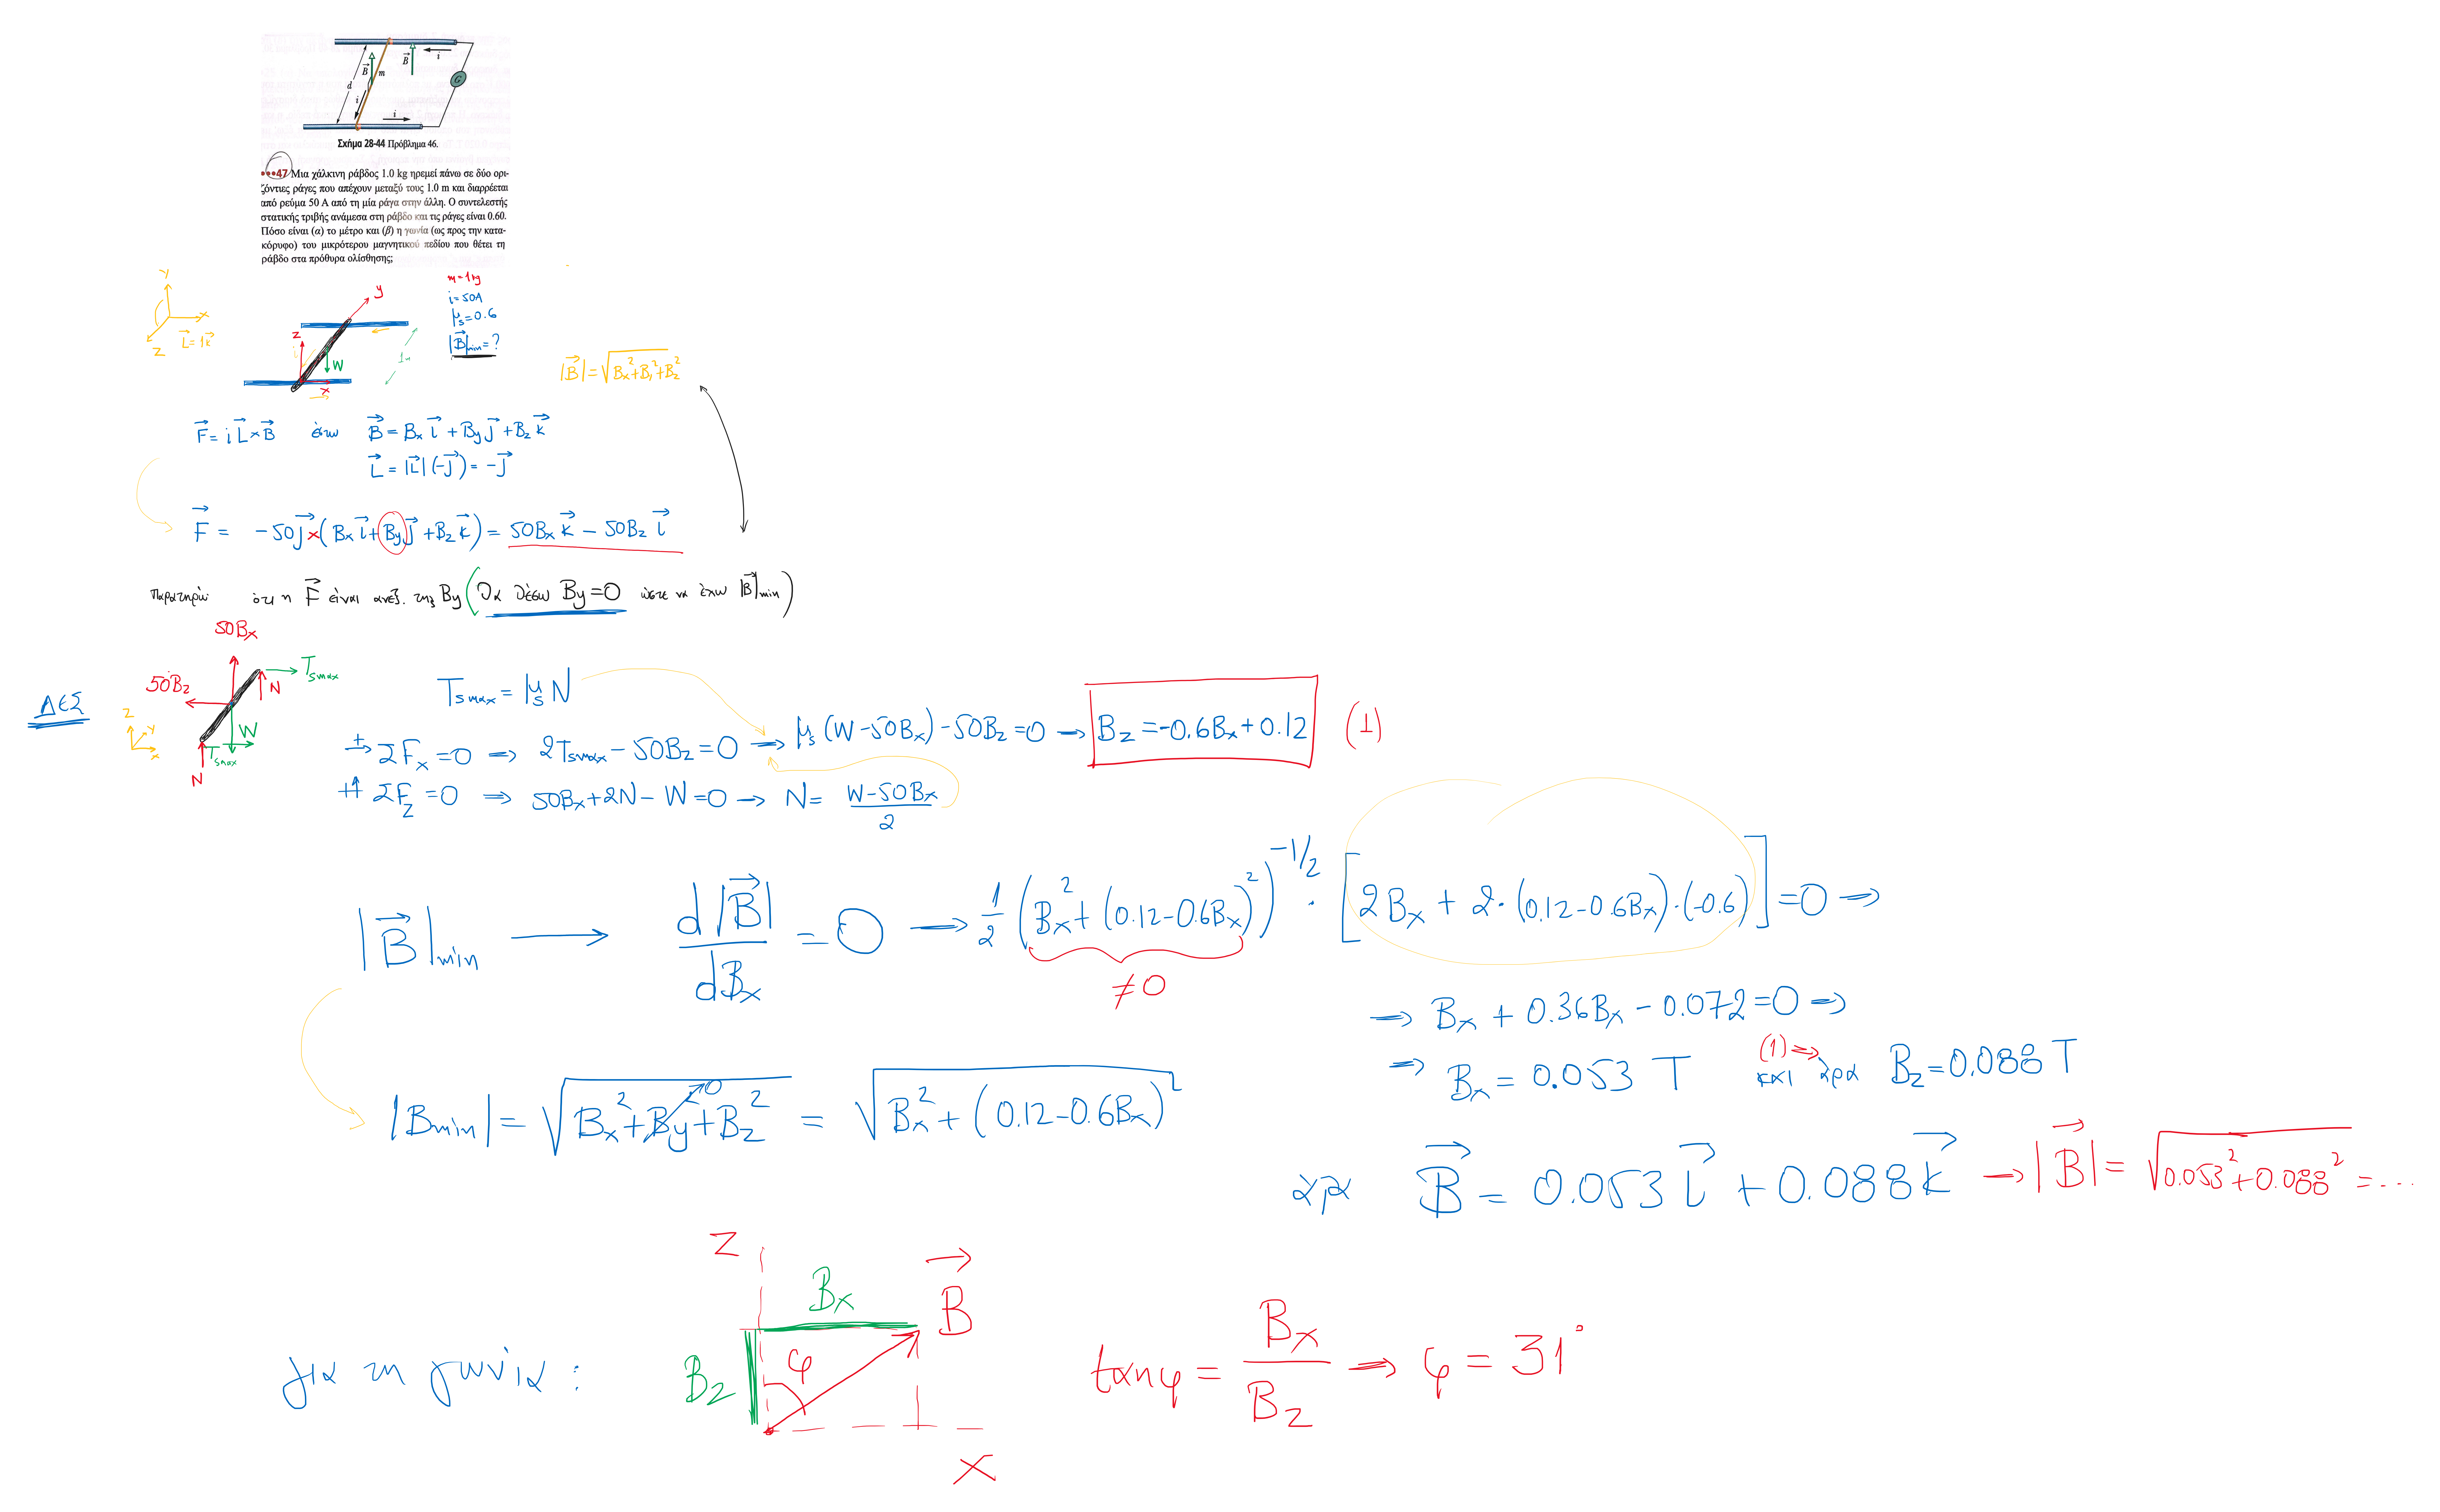 d
B
m
i
B
i
G
i
Σχήμα 28-44 Πρόβλημα 46.
•••47 Μια χάλκινη ράβδος 1.0 kg ηρεμεί πάνω σε δύο ορι-
ζόντιες ράγες που απέχουν μεταξύ τους 1.0 m και διαρρέεται
από ρεύμα 50 A από τη μία ράγα στην άλλη. Ο συντελεστής
στατικής τριβής ανάμεσα στη ράβδο και τις ράγες είναι 0.60.
Πόσο είναι (α) το μέτρο και (β) η γωνία (ως προς την κατα-
κόρυφο) του μικρότερου μαγνητικού πεδίου που θέτει τη
ράβδο στα πρόθυρα ολίσθησης;
Y
X
Z
L⃗=1κ⃗
y
z
i
W
x
1m
m=1kg
i=50A
μs=0.6
|B⃗|min=?
|B⃗|=√(Bx²+By²+Bz²)
F⃗=iL⃗×B⃗ έστω B⃗=Bx i⃗+By j⃗+Bz k⃗
L⃗=|L⃗|(-j⃗)=-j⃗
F⃗= -50j⃗×(Bx i⃗+By j⃗+Bz k⃗)=50Bx k⃗-50Bz i⃗
Παρατηρώ ότι η F⃗ είναι ανεξ. της By (Θα θέσω By=0 ώστε να έχω |B⃗|min)
ΔΕΣ
50Bx
Tsmax
50Bz
N
W
Tsmax
N
z
y
x
Tsmax=μsN
+→ΣFx=0 ⇒ 2Tsmax-50Bz=0 ⇒ μs(W-50Bx)-50Bz=0 ⇒ Bz=-0.6Bx+0.12 (1)
+↑ΣFz=0 ⇒ 50Bx+2N-W=0 ⇒ N=(W-50Bx)/2
|B⃗|min → d|B⃗|/dBx=0 ⇒ 1/2(Bx²+(0.12-0.6Bx)²)^(-1/2)·[2Bx+2·(0.12-0.6Bx)·(-0.6)]=0 ⇒
≠0
⇒ Bx+0.36Bx-0.072=0 ⇒
⇒ Bx=0.053 T και (1)⇒ άρα Bz=0.088 T
|Bmin|=√(Bx²+By²+Bz²)=√(Bx²+(0.12-0.6Bx)²)
0
άρα B⃗=0.053 i⃗+0.088k⃗ ⇒ |B⃗|=√(0.053²+0.088²)=...
για τη γωνία:
z
Bx
B⃗
Bz
φ
x
tanφ=Bx/Bz ⇒ φ=31°